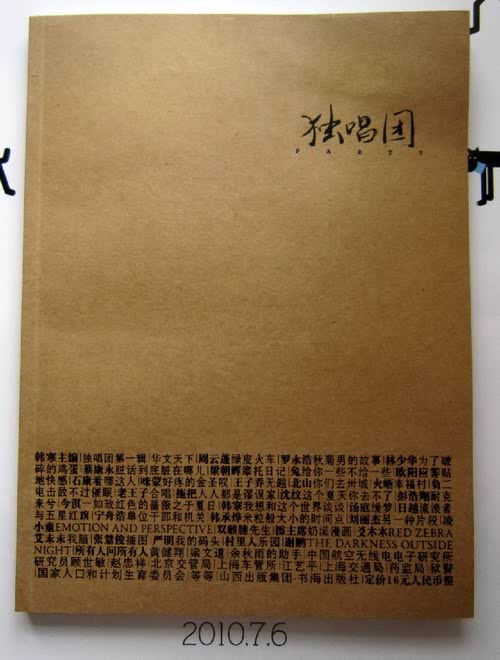 独唱团
PARTY
韩寒主编|独唱团第一辑|华文天下|周云蓬绿皮火车|罗永浩秋菊男的故事|林少华为了破
碎的鸡蛋|蔡康永脏话到底脏在哪儿|梁朝辉摩托日记|兔给你一些不给一些|欧阳应霁贴
地快感|石康看哪这人|咪蒙好疼的金圣叹|王子乔无题|北山你们去州城|火蜥幸福村|负二
电击敌不过催眠|老王子合唱|拖把人人都是谬误家|沈纹这个夏天你去不了|彭浩翔耐克
来兮|今淇一如玫红色的蔷薇之于夏日|韩寒我想和这个世界谈谈|汤庭缓梦|日越流浪者
与五星红旗|宁舟浩单位干部和机关|韩永烨米粒般大小的时间点|刘丽杰另一种片段|凌
小童EMOTION AND PERSPECTIVE|双麒驰先生|图主席奶溪漫画|爻木木RED ZEBRA
艾未未我脑|张慧俊插图|严明我的码头|村里人乐园|谢鹏THE DARKNESS OUTSIDE
NIGHT|所有人问所有人|黄健翔|梁文道|余秋雨的助手|中国航空无线电电子研究所
研究员顾世敏|赵忠祥|北京交管局|上海车管所|江艺平|上海交通局|药监局|狱警
|国家人口和计划生育委员会|等等|山西出版集团·书海出版社|定价16元人民币整
2010.7.6